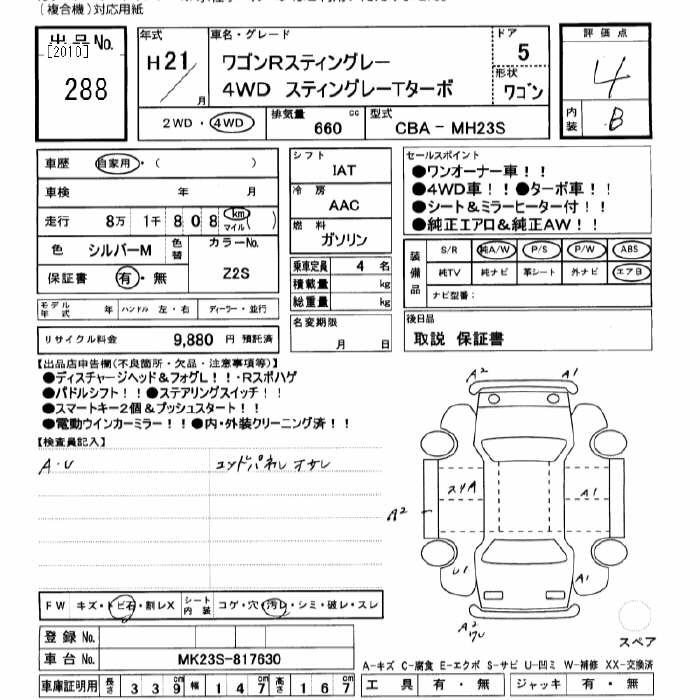 (複合機)対応用紙
出品No.
[2010]
288
年式
H21
月
車名・グレード
ワゴンRスティングレー
4WD スティングレーTターボ
ドア
5
形状
ワゴン
2WD・4WD
排気量
660
cc
型式
CBA－MH23S
評価点
4
内装
B
車歴
自家用・( )
車検
年 月
走行
8万 1千 808 km マイル
色
シルバーM
色替
カラーNo.
Z2S
保証書
有・無
シフト
IAT
冷房
AAC
燃料
ガソリン
乗車定員 4 名
積載量 kg
総重量 kg
名変期限
月 日
セールスポイント
●ワンオーナー車！！
●4WD車！！●ターボ車！！
●シート＆ミラーヒーター付！！
●純正エアロ＆純正AW！！
装備品
S/R 純A/W P/S P/W ABS
純TV 純ナビ 革シート 外ナビ エアB
ナビ型番：
後日品
取説 保証書
モデル年式 年 ハンドル 左・右 ディーラー・並行
リサイクル料金 9,880 円 預託済
【出品店申告欄(不良箇所・欠品・注意事項等)】
●ディスチャージヘッド＆フォグL！！・Rスポハゲ
●パドルシフト！！●ステアリングスイッチ！！
●スマートキー2個＆プッシュスタート！！
●電動ウインカーミラー！！●内・外装クリーニング済！！
【検査員記入】
A・U
エンドパネル オサレ
A2
A1
スリA
A1
A2
U1
A1
A2
スペア
FW キズ・トビ石・割レX
シート内装 コゲ・穴・汚レ・シミ・破レ・スレ
登録No.
車台No.
MK23S-817630
車庫証明用 長さ 339cm 幅 147cm 高さ 167cm
A-キズ C-腐食 E-エクボ S-サビ U-凹ミ W-補修 XX-交換済
工具 有・無 ジャッキ 有・無